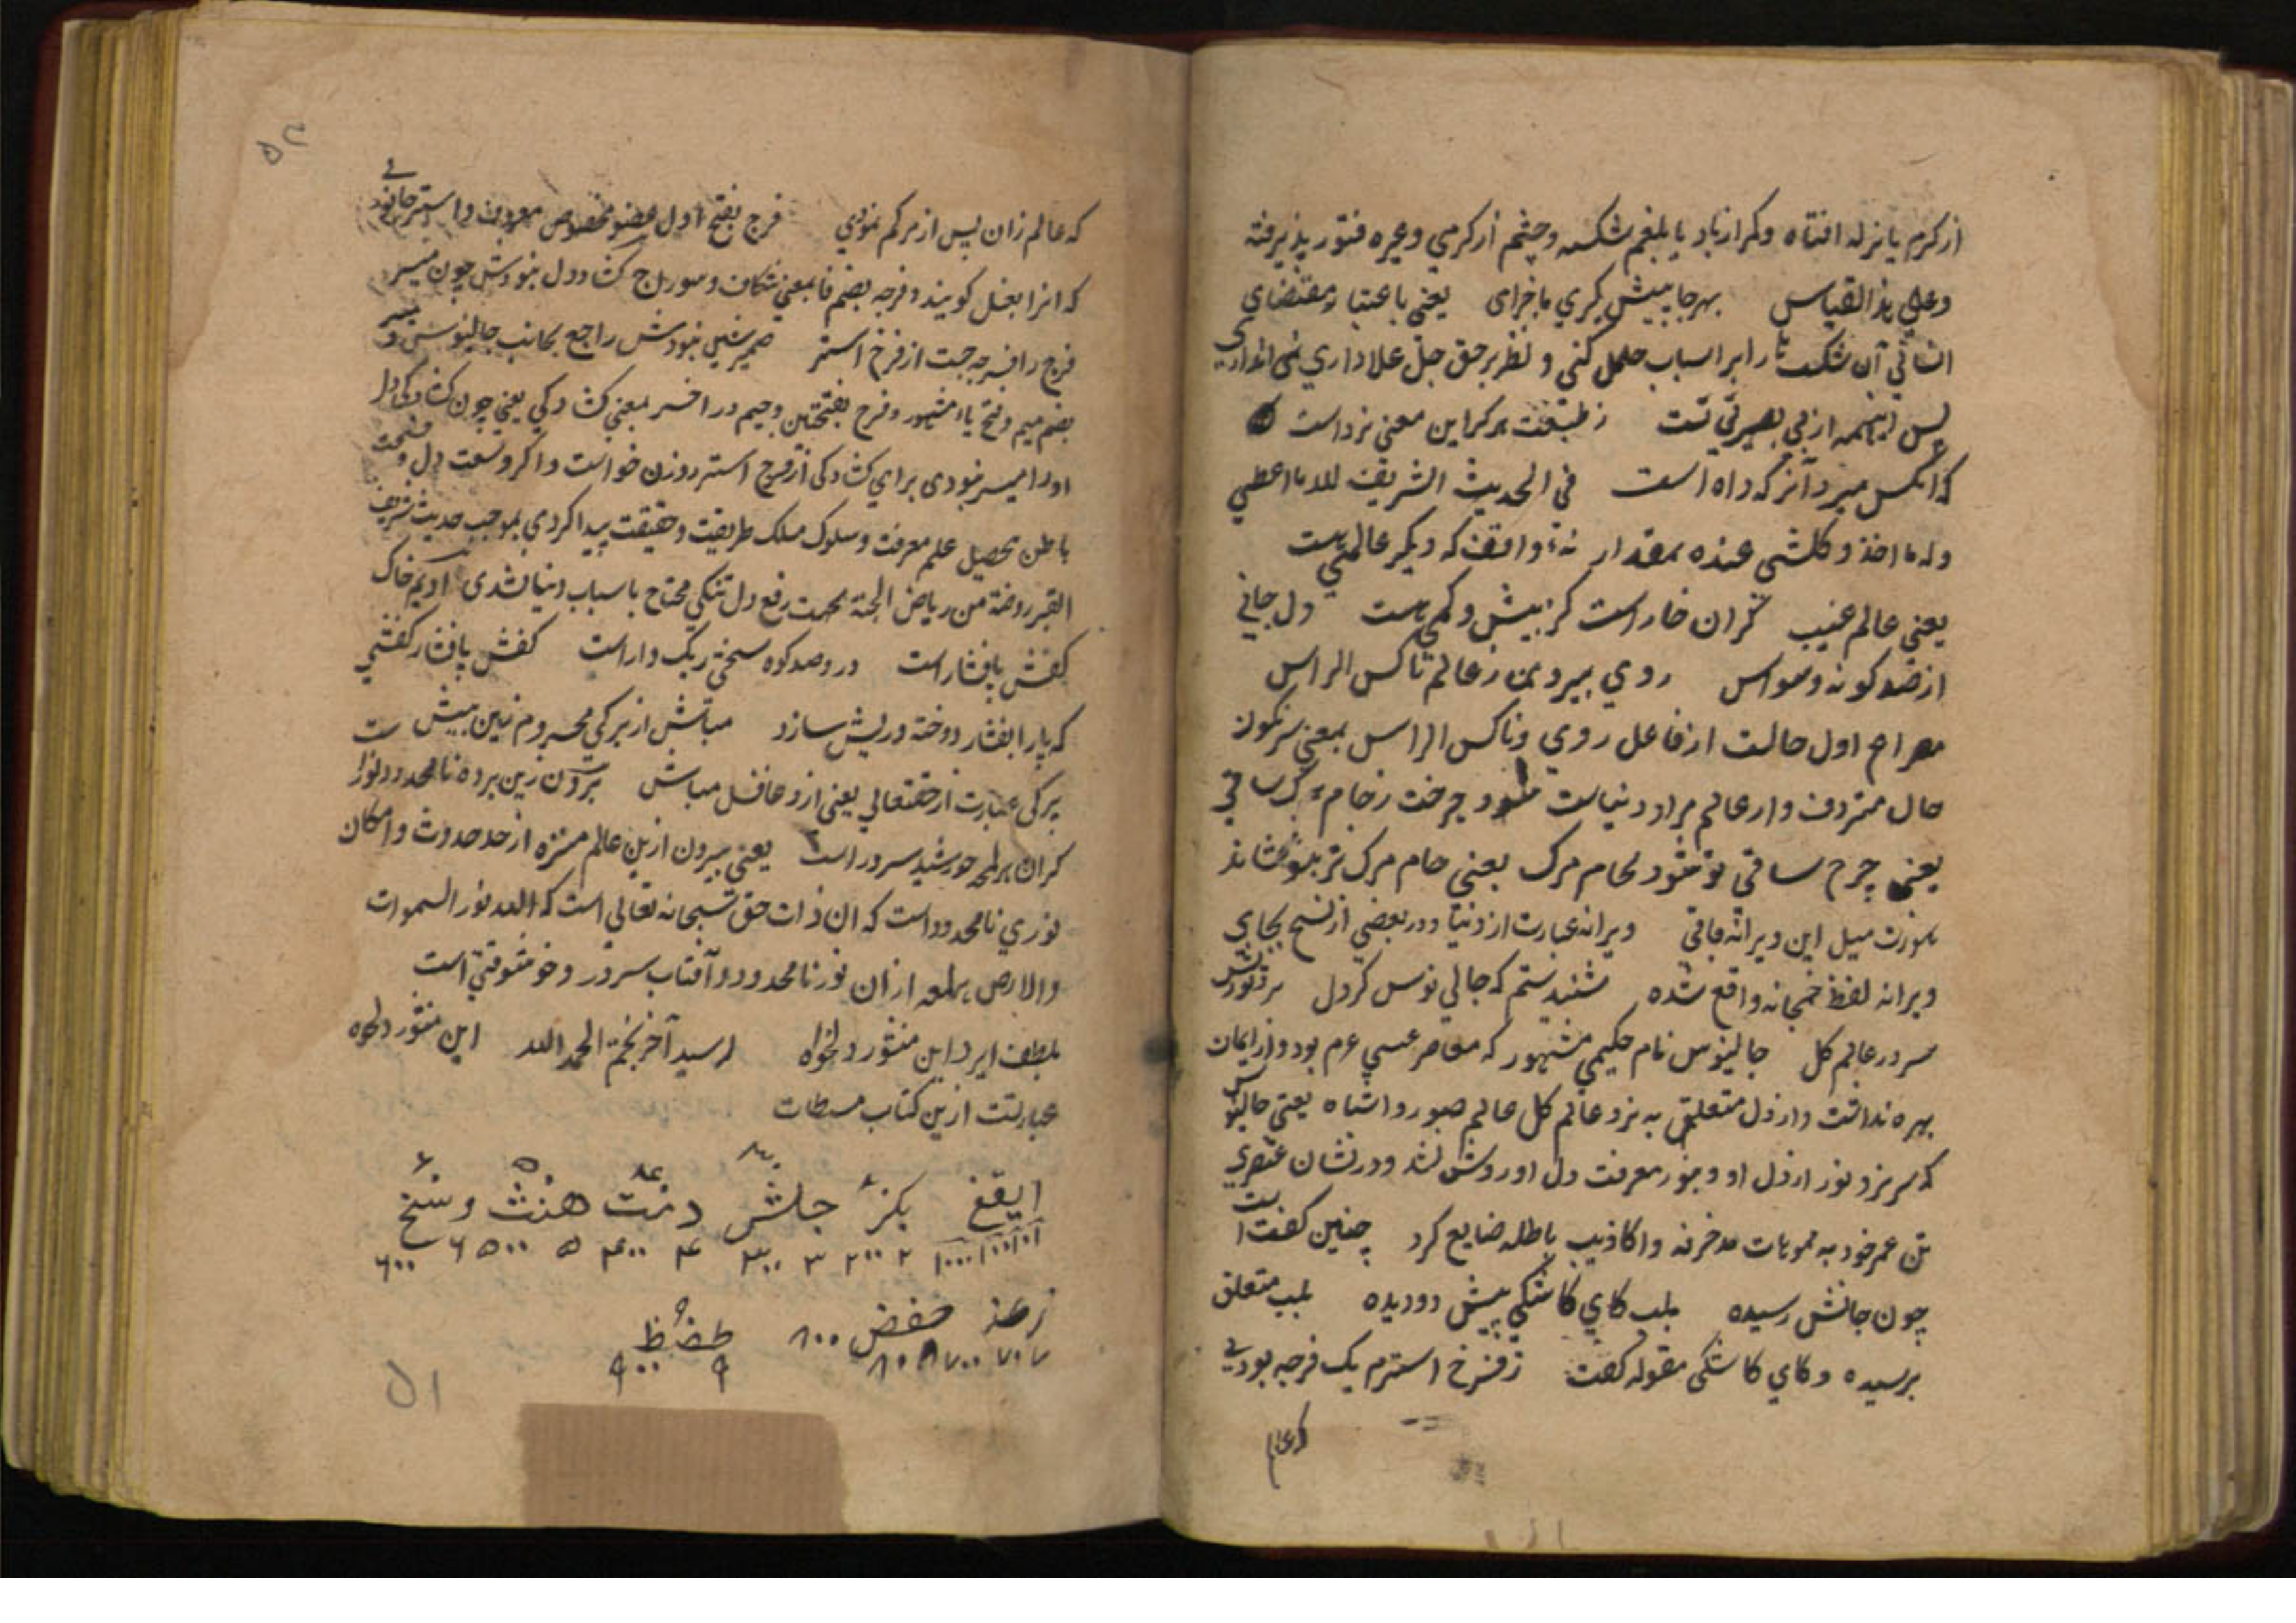 از کرم یا نزله افتاه و کر از باد یا بلغم شکسه و چشم از کرمی و غیره فتور پذیرفته
وعلی هذا القیاس بهرجا پیش کیری ماجرای یعنی باعتبار مقتضای
انسانی آن شکست را بر اسباب حمل کنی و نظر بر حق جل علا داری نمی اندازی
پس اینهمه از بی بصیرتی تست ز طبعت هر کر این معنی نزداست
که انکس میرد آنز که زاه است فی الحدیث الشریف لله ما اعطی
وله ما اخذ و کلشی عنده بمقدار نهٔ واقف که دیکر عالمی هست
یعنی عالم غیب کران خار است کز بیش و کمی هست دل جانی
از ضد کونه وسواس روی بیرون ز عالم ناکس الراس
مصراع اول حالت از فاعل روی و ناکس الراس بمعنی سرنکون
حال مترادف و از عالم مراد دنیاست شود چرخت ز جام مرک ساقی
یعنی چرخ ساقی تو شود بجام مرک یعنی جام مرک ترا بنوشاند
هنوزت میل این ویرانه باقی ویرانه عبارت از دنیا و در بعضی از نسخ بجای
ویرانه لفظ خمخانه واقع شده شنیدستم که جالی نوس کز دل نزد نورش
سر در عالم کل جالینوس نام حکیمی مشهور که معاصر عیسی عم بود و از ایمان
بهره نداشت و از دل متعلق به نزد عالم کل عالم صور و اشباه یعنی جالینوس
که سر نزد نور از دل او و بنور معرفت دل او روشن نشد و در نشان عنصری
تن عمر خود به مموهات مزخرفه و اکاذیب باطله ضایع کرد چنین کفت است
چون جانش رسیده بلب کای کاشکی پیش دو دیده بلب متعلق
برسیده و کای کاشکی مقوله کفت ز فرخ استرم یک فرجه بودی
که عالم
که عالم زان پس از مرکم نمودی فرج بفتح اول عضو مخصوص معروف و استر جانوری
که انرا بغل کویند و فرجه بضم فا بمعنی شکاف و سوراخ کشاد دل نبودش چون میسر
فرج را فرجه جست از فرج استر ضمیر شین نبودش راجع بجانب جالینوس و میسر
بضم میم و فتح یاء مشهور و فرج بفتحتین و جیم در اخر بمعنی کشادکی یعنی چون کشادکی دل
اورا میسر نبودی برای کشادکی از فرج استر روزن خواست و اکر وسعت دل و فسحت
باطن تحصیل علم معرفت و سلوک مسلک طریقت و حقیقت پیدا کردی بموجب حدیث شریف
القبر روضة من ریاض الجنة بجهت رفع دل تنکی محتاج باسباب دنیا نشدی ادیم خاک
کفش پافشار است درو صد کوه سختی ریک وار است کفش پافشار کفشی
که پا را بفشار دوخته و ریش سازد مباش از برکی محروم زین بیش
برکی عبارت از حقتعالی یعنی ازو غافل مباش برون زین پرده نامحدود نور است
کران هر لمعه خورشید سرور است یعنی بیرون ازین عالم منزه از حد حدوث و امکان
نوری نامحدود است که ان ذات حق سبحانه تعالی است که الله نور السموات
والارض هر لمعه از ان نور نامحدود و آفتاب سرور و خوشوقتی است
بلطف ایزد این منشور دلخواه رسید آخر بختم الحمد الله این منشور دلخواه
عبارتست ازین کتاب مسطات
ایقغ بکر جلش دمت هنث وسخ
۱ ۱۰ ۱۰۰ ۱۰۰۰ ۲ ۲۰۰ ۳ ۳۰۰ ۴ ۴۰۰ ۵ ۵۰۰ ۶ ۶۰۰
زعذ حفض ۸۰۰ طصظ
۷ ۷۰ ۷۰۰ ۸ ۸۰ ۹ ۹۰۰
۵۱
۵۲